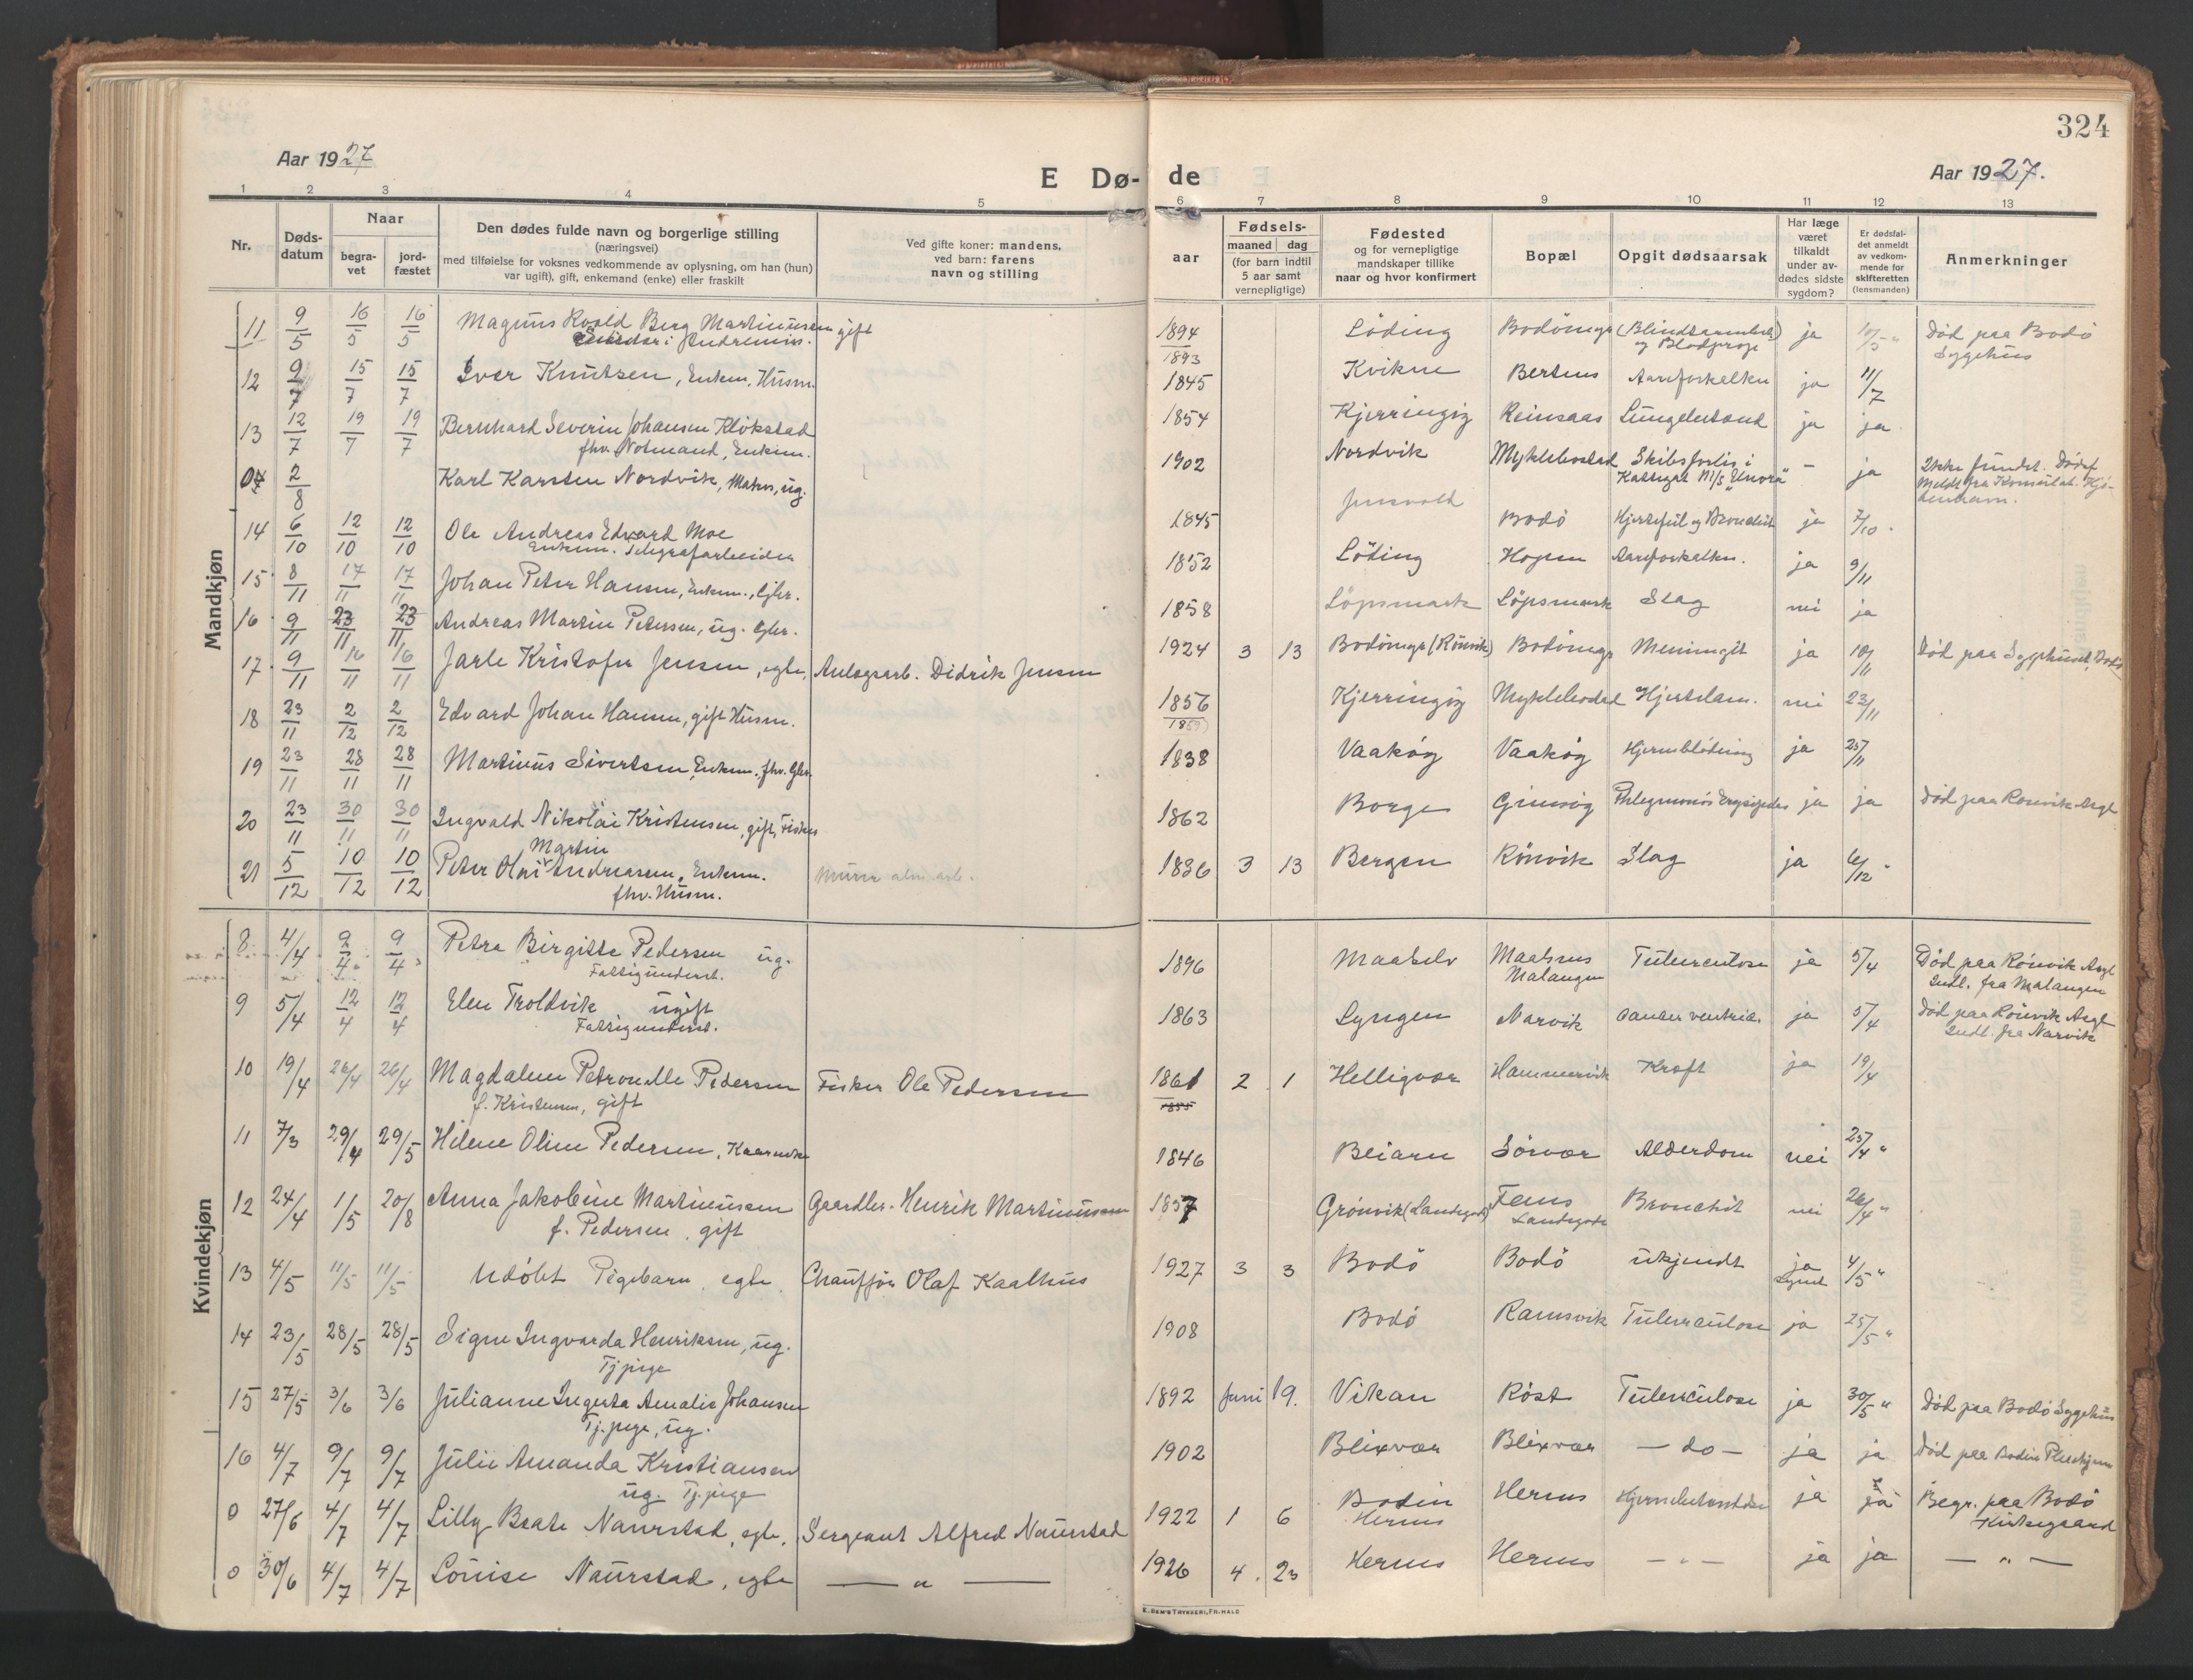 324
Aar 1927
E Dø-de
Aar 1927.
1 2 3 4 5 6 7 8 9 10 11 12 13
Nr.
Døds-
datum
Naar
begra-
vet
jord-
fæstet
Den dødes fulde navn og borgerlige stilling
(næringsvei)
med tilføielse for voksnes vedkommende av oplysning, om han (hun)
var ugift), gift, enkemand (enke) eller fraskilt
Ved gifte koner: mandens,
ved barn: farens
navn og stilling
aar
Fødsels-
maaned dag
(for barn indtil
5 aar samt
vernepligtige)
Fødested
og for vernepligtige
mandskaper tillike
naar og hvor konfirmert
Bopæl
Opgit dødsaarsak
Har læge
været
tilkaldt
under av-
dødes sidste
sygdom?
Er dødsfal-
det anmeldt
av vedkom-
mende for
skifteretten
(lensmanden)
Anmerkninger
Mandkjøn
11 9/5 16/5 16/5 Magnus Roald Berg Martinussen gift 1894 Löding Bodömyr (Blindtarmbet.) ja 10/5 " Död paa Bodö
og Blodprop Sygehus
1893
12 9/7 15/7 15/7 Iver Knutsen, Enkem. Husm. 1845 Kvikne Bertnes Aareforkalkn ja 11/7
13 12/7 19/7 19/7 Bernhard Severin Johansen Klökstad 1854 Kjerringöy Reinsaas Lungebetænd ja ja
fhv. Notmand, Enkem.
0 2/8 Karl Karsten Nordvik, Matros, ug. 1902 Nordvik Myklebostad Skibsforlis i - ja Ikke fundet. Dödsf.
Kattegat M/S "Elnora" Meldt fra Konsulat. Kjö-
benhavn.
14 6/10 12/10 12/10 Ole Andreas Edvard Moe 1845 Junsvold Bodö Hjertefeil og Bronchit ja 7/10
Enkem. Telegrafarbeider
15 8/11 17/11 17/11 Johan Peter Hansen, Enkem., Gbr. 1852 Löding Hogen Aareforkalkn. ja 9/11
16 9/11 23/11 23/11 Andreas Martin Petersen, ug. Gbr. 1858 Löpsmark Löpsmark Slag nei ja
17 9/11 16/11 16/11 Jarle Kristofer Jensen, egte, Anlægsarb. Didrik Jensen 1924 3 13 Bodömyr (Rönvik) Bodömyr Meningit ja 10/11 Död paa Sygehuset, Bodö
18 23/11 2/12 2/12 Edvard Johan Hansen, gift Husm. 1856 Kjerringöy Myklebostad Hjertelam. nei 23/11
19 23/11 28/11 28/11 Martinus Sivertsen, Enkem. fhv. Gbr. 1838 Vaaköy Vaaköy Hjerneblödning ja 25/11
20 23/11 30/11 30/11 Ingvald Nikolai Kristensen, gift, Fisker 1862 Borge Gimsöy Phlegmonös Erysipelas ja ja Död paa Rönvik Asyl
21 5/12 10/12 10/12 Peter Olai Martin Andreasen, Enkem. 1836 3 13 Bergen Rönvik Slag ja 6/12 "
fhv. Husm.
Kvindekjøn
8 4/4 9/4 9/4 Petra Birgitte Pedersen ug. 1896 Maalselv Maalsnes Tuberculose ja 5/4 Död paa Rönvik Asyl
Fattigunderst. Malangen Indl. fra Malangen
9 5/4 12/4 12/4 Elen Troldvik ugift 1863 Lyngen Narvik Cancer ventric. ja 5/4 Död paa Rönvik Asyl
Fattigunderst. Indl. fra Narvik
10 19/4 26/4 26/4 Magdalene Petronelle Pedersen Fisker Ole Pedersen 1861 2 1 Helligvær Hammervik Kræft ja 19/4
f. Kristensen, gift 1855
11 7/3 29/4 29/5 Helene Oline Pedersen, Kaarenke 1846 Beiarn Sörvær Alderdom nei 25/4 "
12 24/4 1/5 20/8 Anna Jakobine Martinussen Gaardbr. Henrik Martinussen 1857 Grönvik (Landego) Fenes Bronchit nei 26/4 "
f. Pedersen, gift Landego
13 4/5 11/5 11/5 Udöbt Pigebarn, egte. Chauffør Olaf Kaalhus 1927 3 3 Bodö Bodö ukjendt ja 4/5 "
14 23/5 28/5 28/5 Signe Ingvarda Henriksen, ug. 1908 Bodö Ramsvik Tuberculose ja 25/5 "
Tjpige
15 27/5 3/6 3/6 Julianne Ingerta Amalie Johansen 1892 Juni 19. Vikan Röst Tuberculose ja 30/5 " Död paa Bodö Sygehus
Tj.pige, ug.
16 4/7 9/7 9/7 Julie Amanda Kristiansen 1902 Blixvær Blixvær - do - ja ja Död paa Bodin Pleiehjem
ug. Tj.pige
0 27/6 4/7 4/7 Lilly Beate Naurstad, egte, Sergeant Alfred Naurstad 1922 1 6 Bodin Hernes ja ja Begr. paa Bodö
Hernes Kirkegaard
0 30/6 4/7 4/7 Louise Naurstad, egte — " — 1926 4 23 Hernes Hernes — " — ja ja — " —
E. SEM'S TRYKKERI, FR.HALD